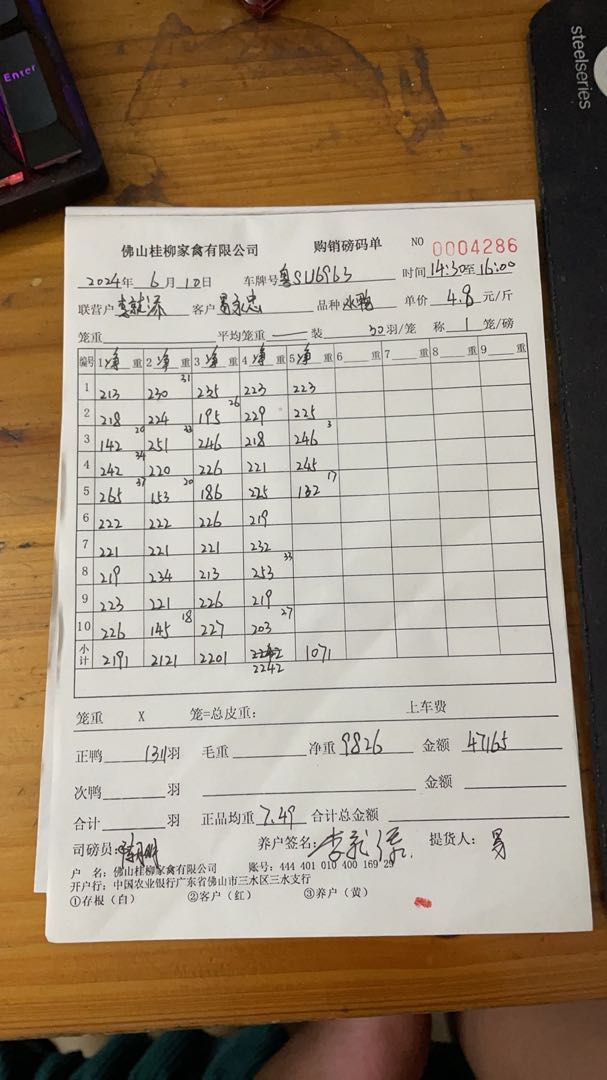 Enter
steelseries
佛山桂柳家禽有限公司 购销磅码单 NO 0004286
2024年 6 月 10 日 车牌号 粤SU6963 时间 14:30至16:00
联营户 客户 易永忠 品种 水鸭 单价 4.8 元/斤
笼重 平均笼重 装 30 羽/笼 称 1 笼/磅
编号 1 净 重 2 净 重 3 净 重 4 净 重 5 净 重 6 重 7 重 8 重 9 重
1 213 230 31 235 223 223
2 218 224 195 26 229 225
3 142 20 251 33 246 218 246 3
4 242 34 220 226 221 245
5 265 37 153 20 186 225 132 17
6 222 222 226 219
7 221 221 221 232
8 219 234 213 253 33
9 223 221 226 219
10 226 145 18 227 203 27
小计 2191 2121 2201 1071
2242
笼重 X 笼=总皮重： 上车费
正鸭 1311 羽 毛重 净重 9826 金额 47165
次鸭 羽 金额
合计 羽 正品均重 7.49 合计总金额
司磅员: 养户签名: 提货人: 易
户 名: 佛山桂柳家禽有限公司 账号: 444 401 010 400 169 29
开户行: 中国农业银行广东省佛山市三水区三水支行
①存根（白） ②客户（红） ③养户（黄）